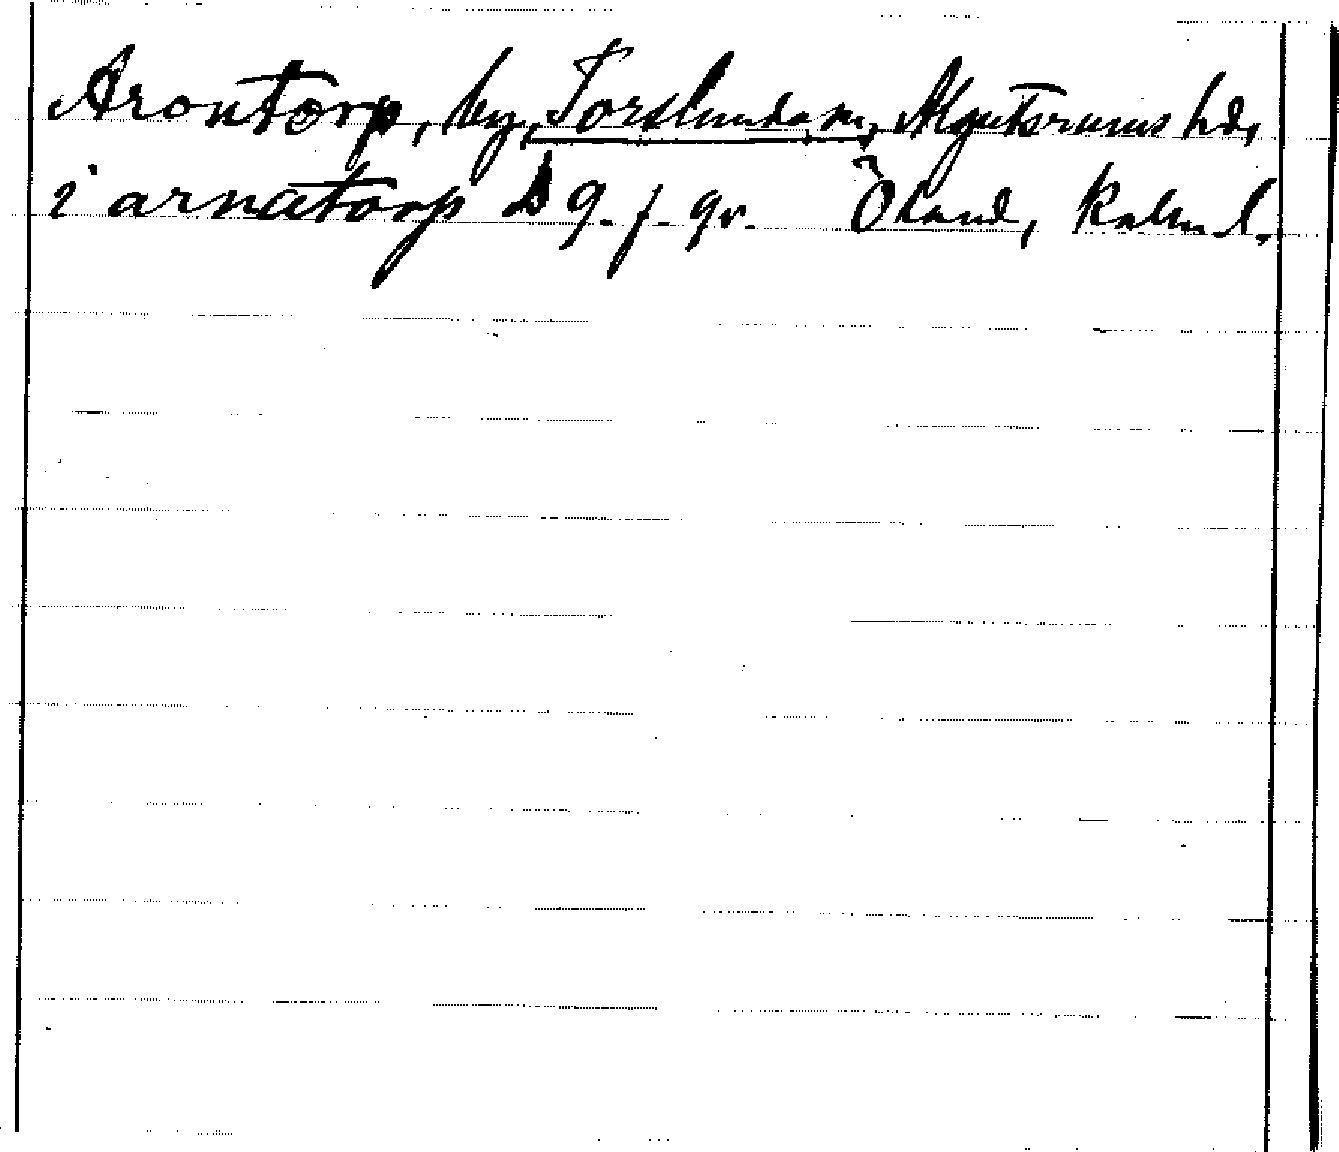 Arontorp, by, Torslunda sn, Algutsrums hd,
i arnatorp D 9. f. gr. Öland, Kalm. l.